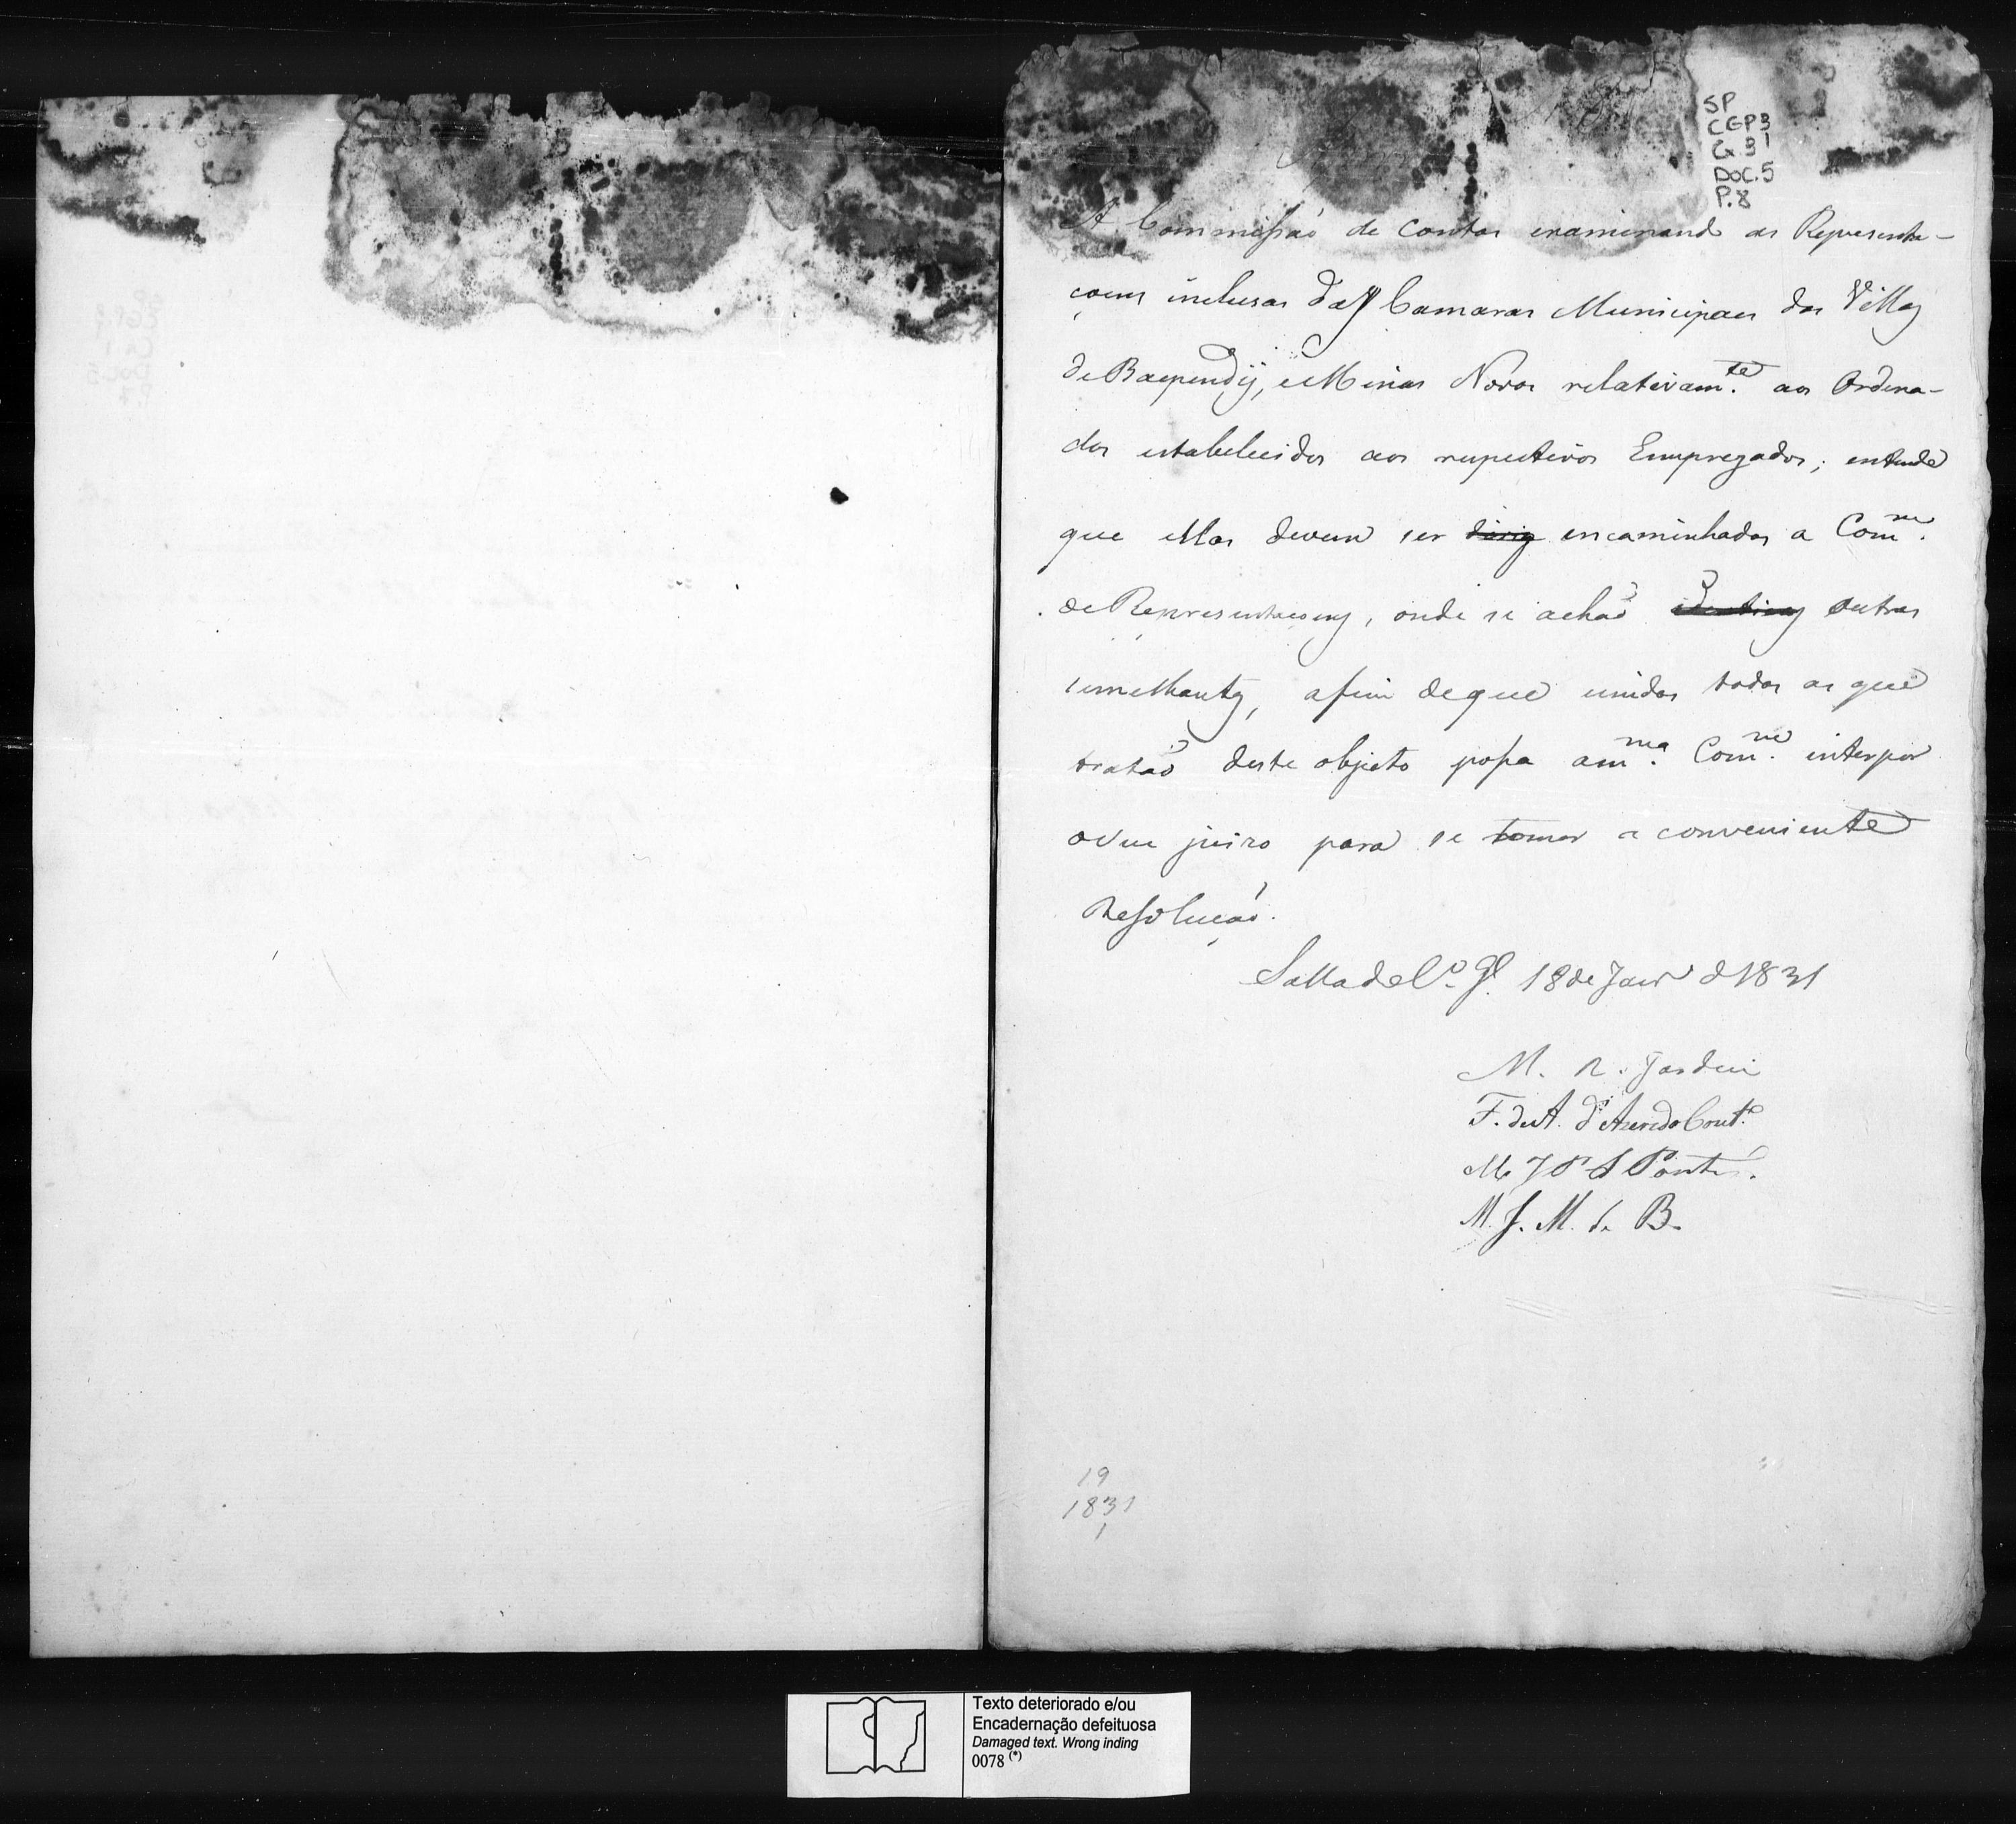 SP
CGP3
Cx 31
DOC. 5
P. 8
A Commissaõ de Contas examinand as Representa-
çoens inclusas das Camaras Municipaes das Villas
de Baependÿ, e Minas Novas relativam.te aos Ordena-
dos estabelecidos aos respectivos Empregados; entende
que ellas devem ser dirig encaminhadas a Com.me
de Representaçoens, onde se achaõ outras
semelhantes, afim deque unidas todas as que
trataõ deste objeto possa am.ma Com.me interpor
oseu juizo para se tomar a conveniente
Resoluçaõ.
Salla do C.o G.l 18 de Janr.o d 1831
M. R. Jardim
F. de A. d'Azeredo Cout.o
M J P S Pontes.
M. J. M. de B.
19
1831
1
Texto deteriorado e/ou
Encadernação defeituosa
Damaged text. Wrong inding
0078 (*)